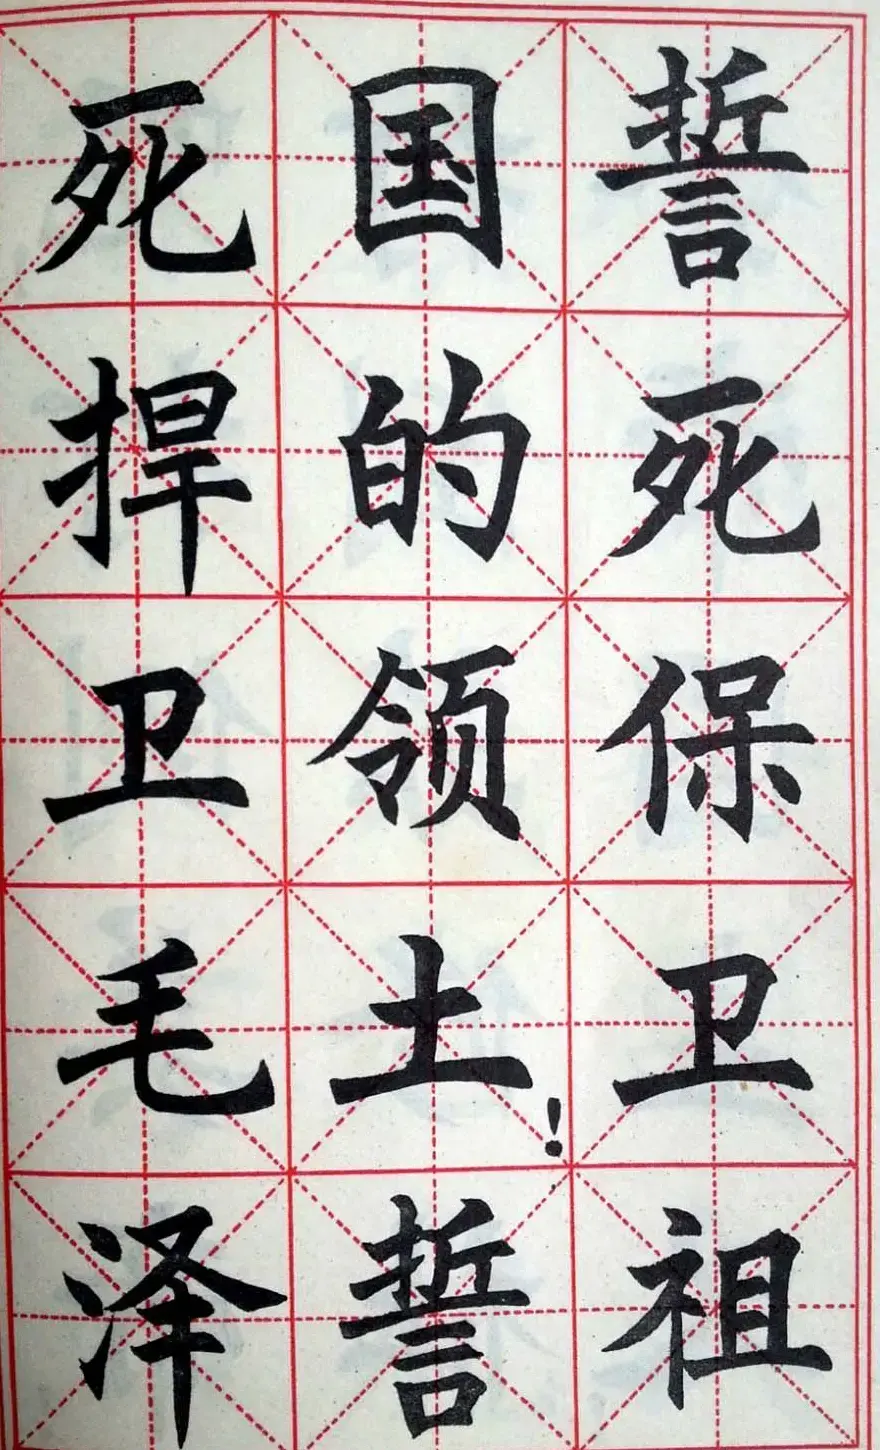 誓死保卫祖
国的领土!誓
死捍卫毛泽